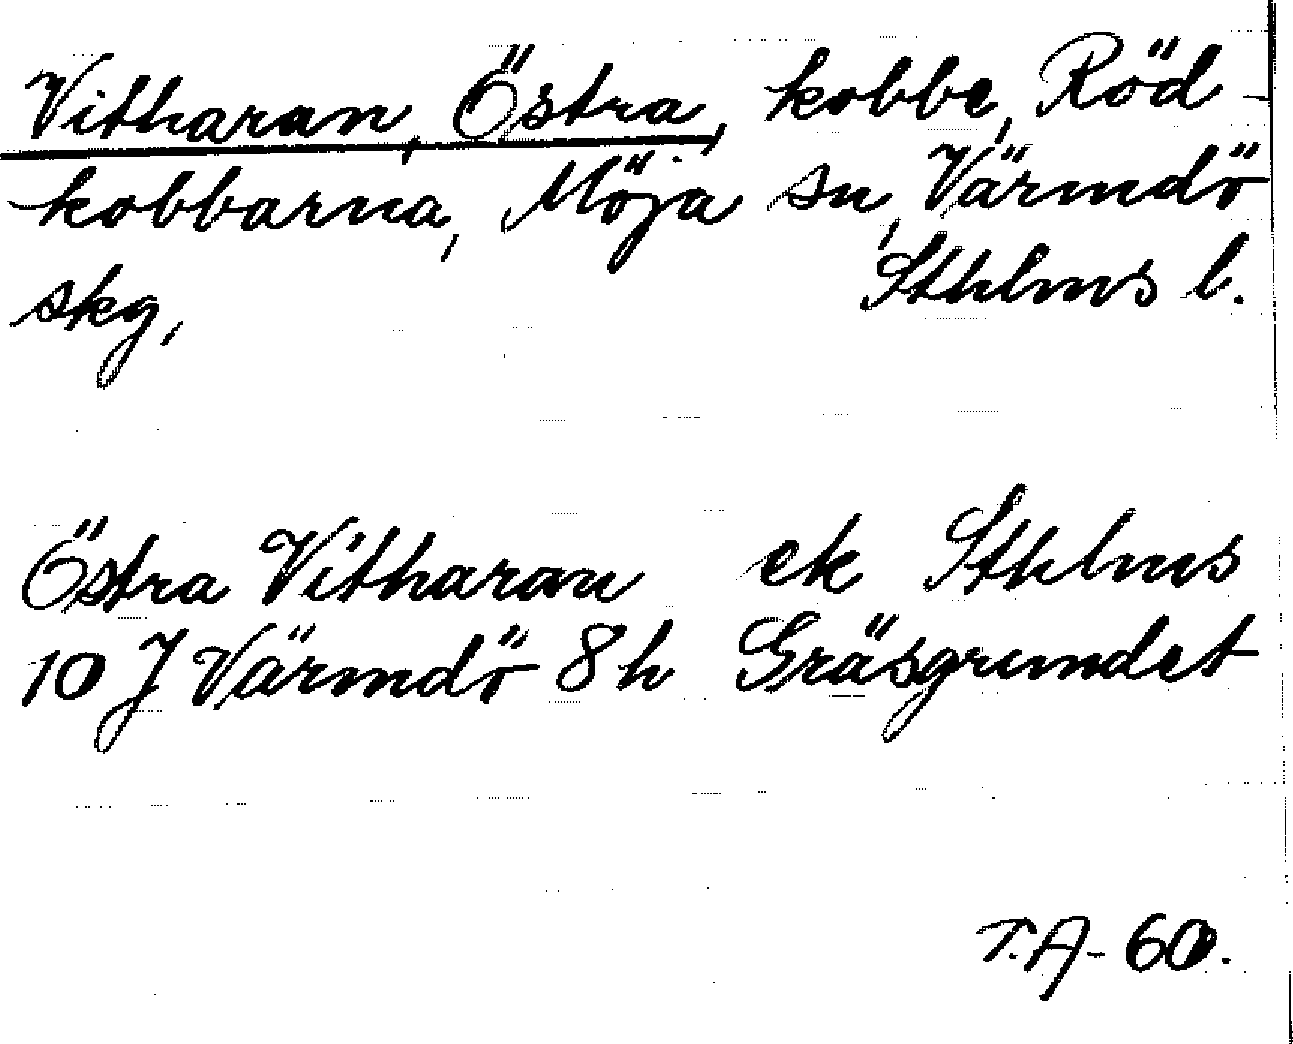 Vitharan, Östra, kobbe, Röd-
kobbarna, Möja sn, Värmdö
skg, Sthlms l.
Östra Vitharan ek Sthlms
10 J Värmdö 8h Gräsgrundet
T.A- 60.